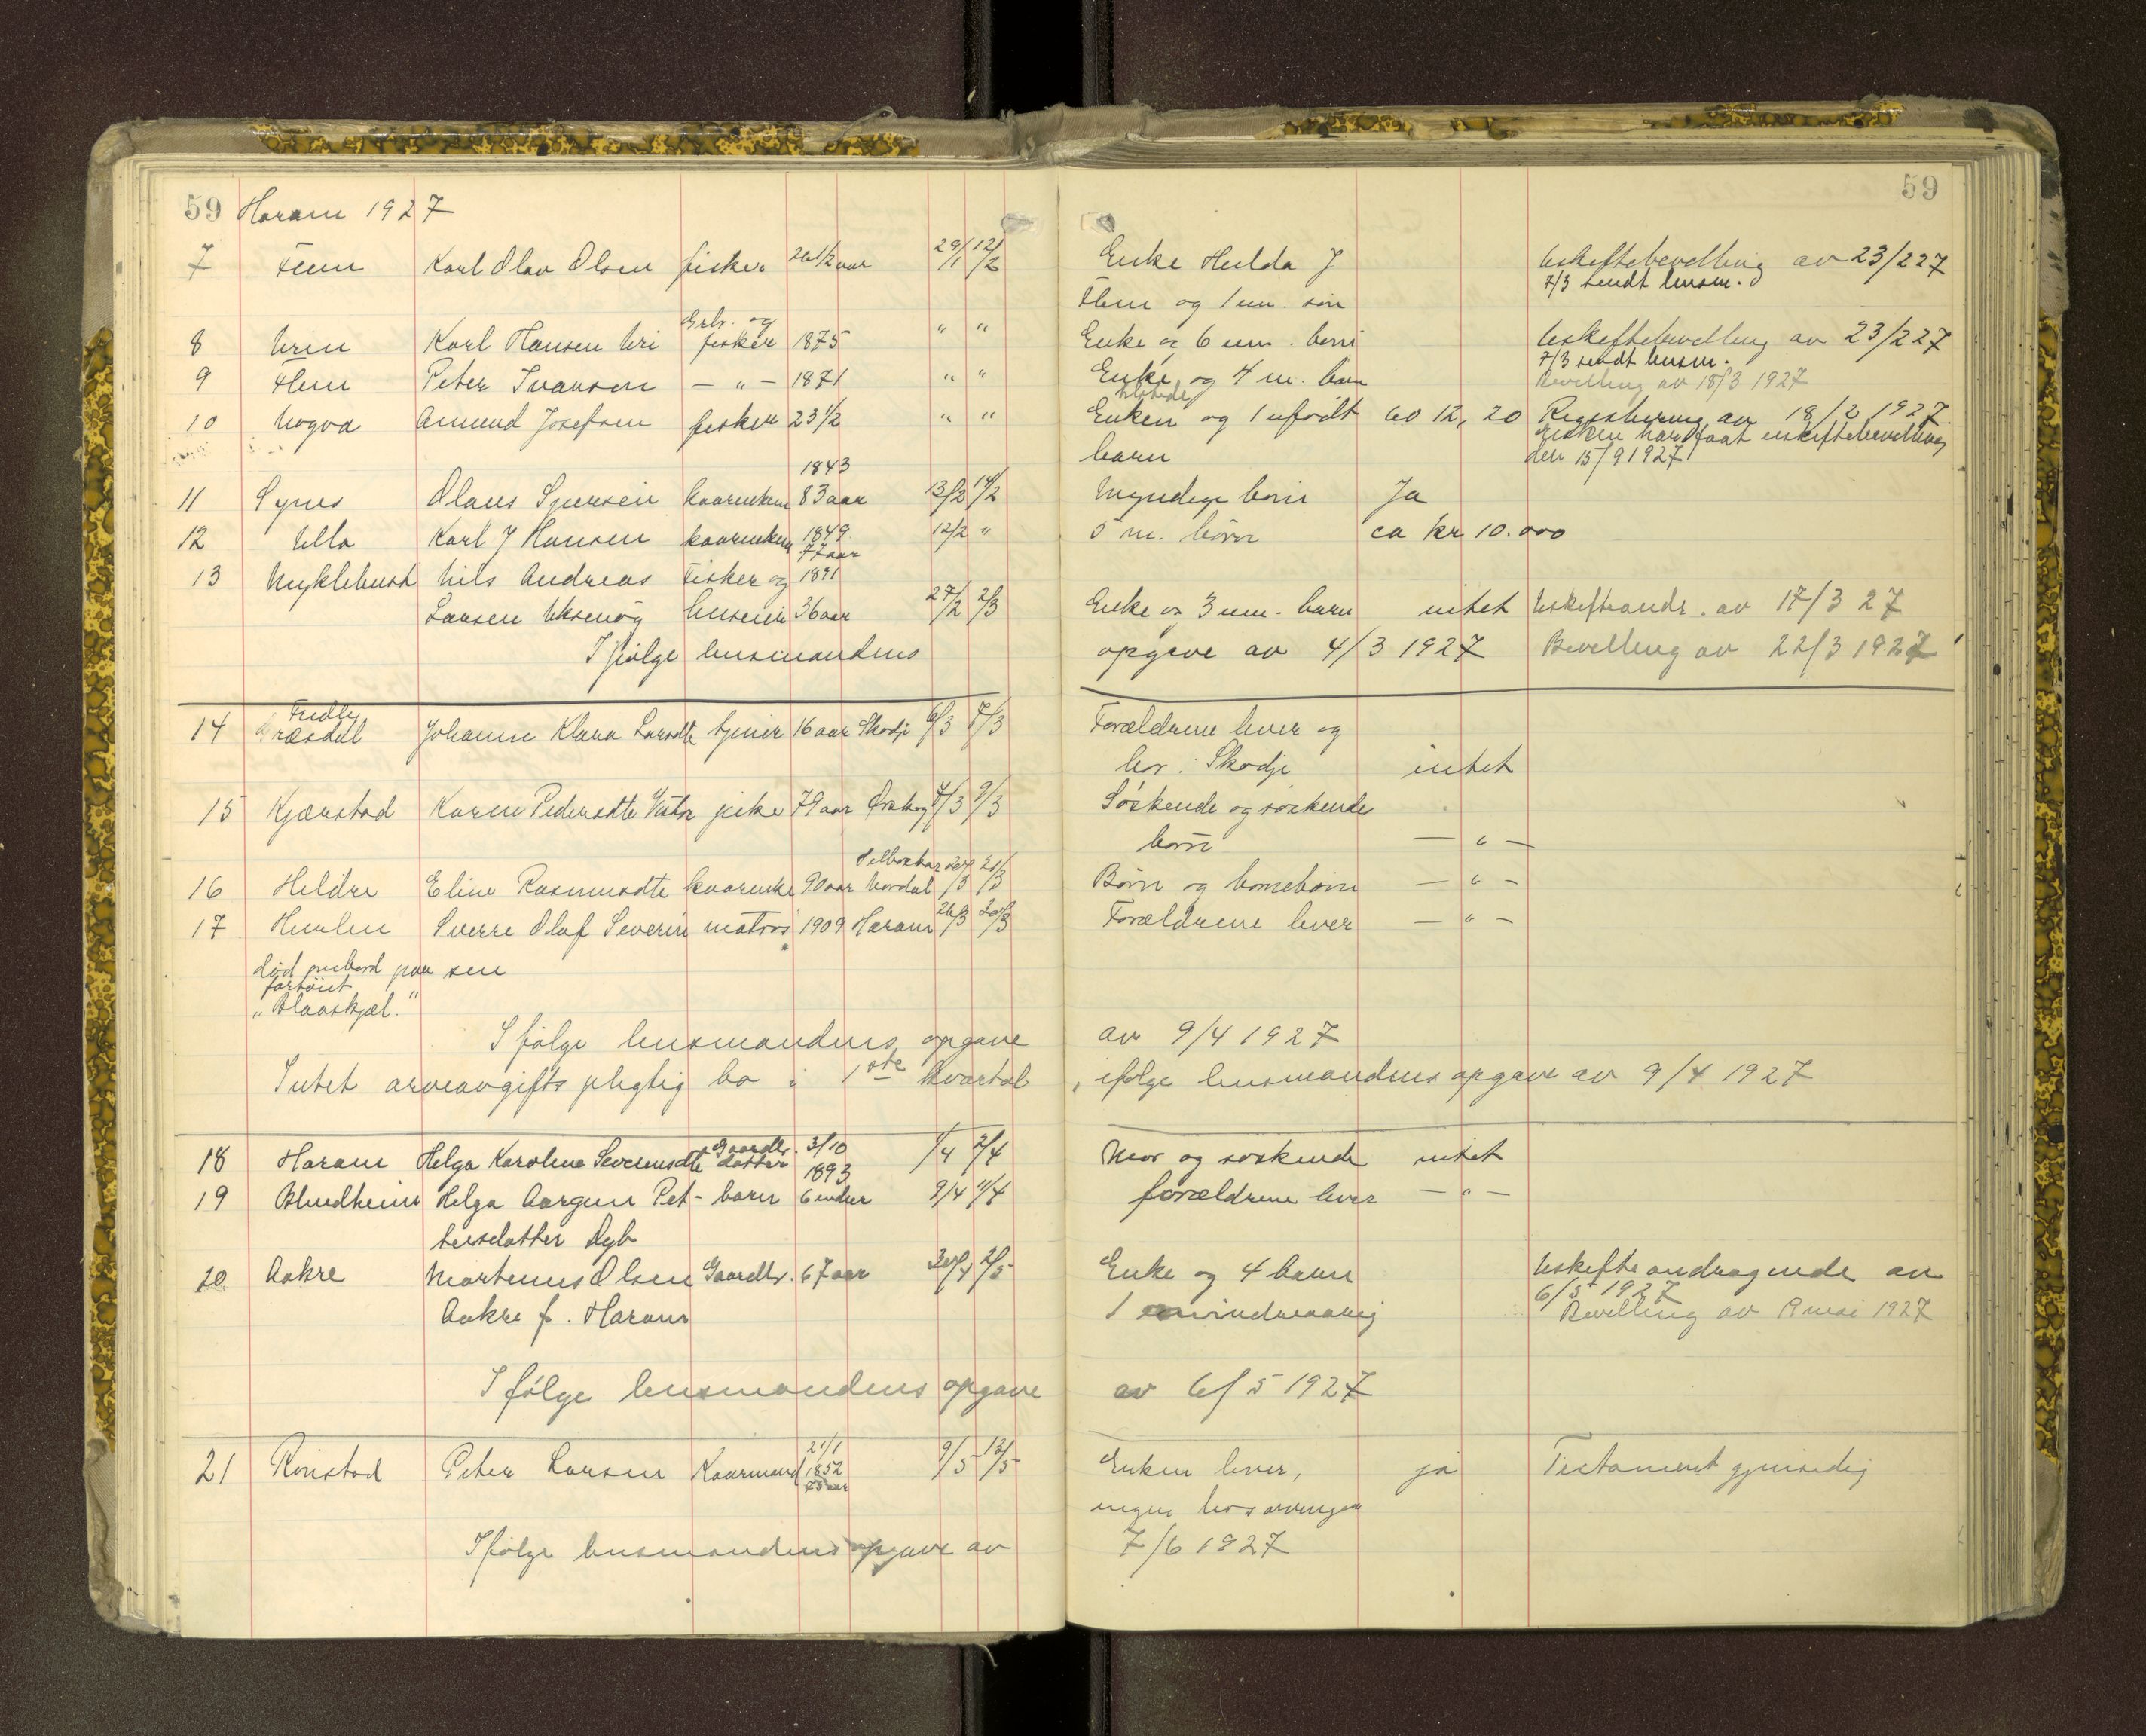 59 Haram 1927 59
7 Flem Karl Olav Olsen fisker 26 1/2 aar 29/1 12/2 Enke Hulda J Uskiftebevilling av 23/2 27
7/3 sendt lensm.
Flem og 1 um. søn
Grb. og
8 Urin Karl Hansen Uri fisker 1875 " " Enke og 6 um. børn Uskiftebevilling av 23/2 27
7/3 sendt lensm.
9 Flem Peter Ivarsen — " — 1871 " " Enke og 4 m. børn Bevilling av 18/3 1927
10 Nogva Amund Josefsen fisker 23 1/2 " " Enken og 1 ufødt 60 12, 20 Registrering av 18/2 1927.
Enken har faat uskiftebevilling
barn den 15/9 1927
1843
11 Synes Olaus Sjursen kaarenkem 83 aar 13/2 14/2 Myndige børn Ja
12 Ulla Karl J Hansen kaarenkem 1849 12/2 " 5 m. børn ca kr 10.000
77 aar
13 Myklebust Nils Andreas Fisker og 1891
Larsen Uksenøy 36 aar 27/2 2/3 Enke og 3 um. barn intet Uskifteandr. av 17/3 27
Ifølge lensmandens opgave av 4/3 1927 Bevilling av 22/3 1927
Fredly
14 Græsdal Johanne Klara Larsdtr tjener 16 aar Skodje 6/3 7/3 Forældrene lever og
bor i Skodje intet
15 Kjærstad Karen Pedersdtr pike 79 aar Ørskog 4/3 9/3 Søskende og søskende
børn — " —
16 Hildre Eline Rasmusdtr kaarenke 90 aar Nordal 20/3 21/3 Børn og børnebørn — " —
17 Hemlen Sverre Olaf Severin matros 1909 Haram 26/3 Forældrene lever — " —
død ombord paa sen
fartøiet
„Blaaskjæl."
Ifølge lensmandens opgave av 9/4 1927
Intet arveavgifts pligtig bo i 1ste kvartal, ifølge lensmandens opgave av 9/4 1927
18 Haram Helga Karoline Severinsdtr Gaardbr. datter 3/10 1893 1/4 2/4 Mor og søskende intet
19 Blindheim Helga Aargun Pet- barn 6 mdner 9/4 11/4 forældrene lever — " —
tersdatter Dyb
20 Aakre Martinus Olsen Gaardbr. 67 aar 30/4 2/5 Enke og 4 barn Uskifteandragende av
6/5 1927
Aakre f. Haram 1 mindreaarig Bevilling av 9 mai 1927
Ifølge lensmandens opgave av 6/5 1927
21/1
21 Rønstad Peter Larsen Kaarmand 1852 9/5 13/5 Enken lever, ja Testament gjensidig
75 aar
ingen livsarvinger
Ifølge lensmandens opgave av 7/6 1927